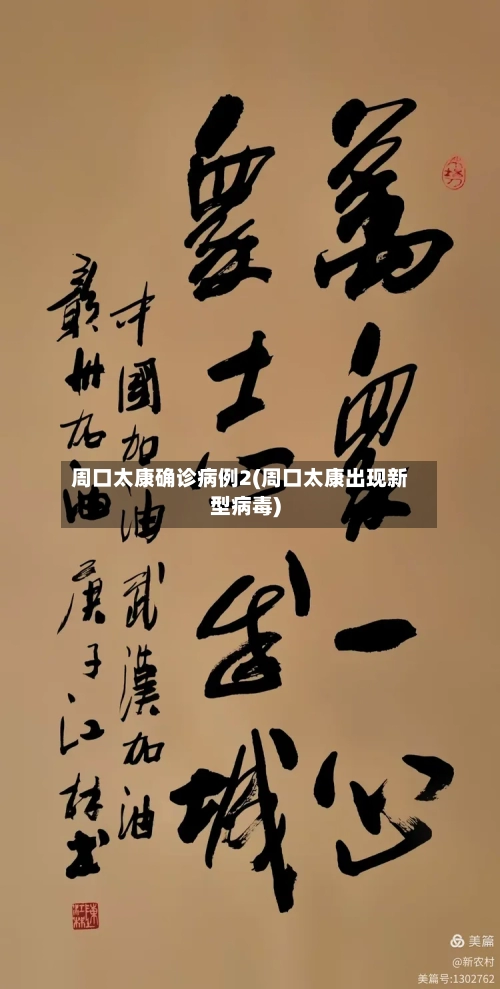 萬眾一心
眾志成城
中國加油武漢加油
贛州加油 庚子江林书
周口太康确诊病例2(周口太康出现新
型病毒)
美篇
@新农村
美篇号:1302762